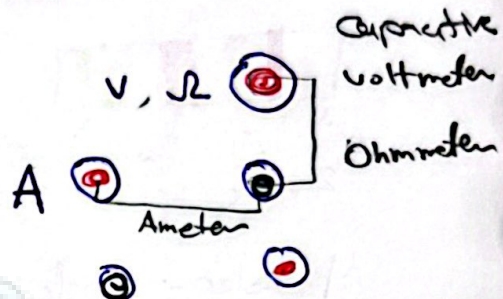 Capacitive
V, Ω voltmeter
Ohmmeter
A
Ameter